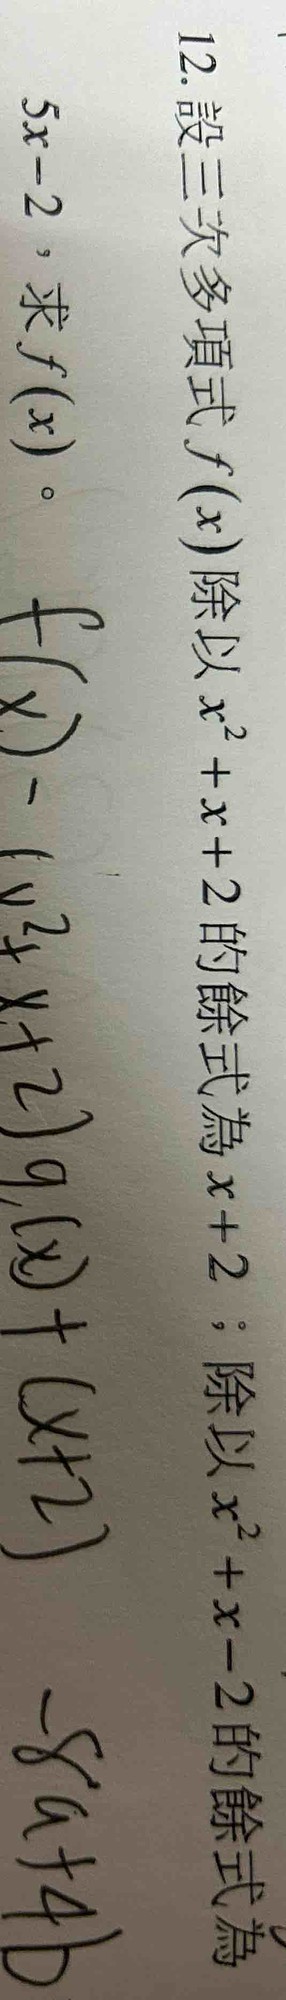 12. 設三次多項式 f(x) 除以 x² + x + 2 的餘式為 x + 2；除以 x² + x − 2 的餘式為
5x − 2，求 f(x)。
f(x) = (x² + x + 2) q(x) + (x + 2)
−8a + 4b